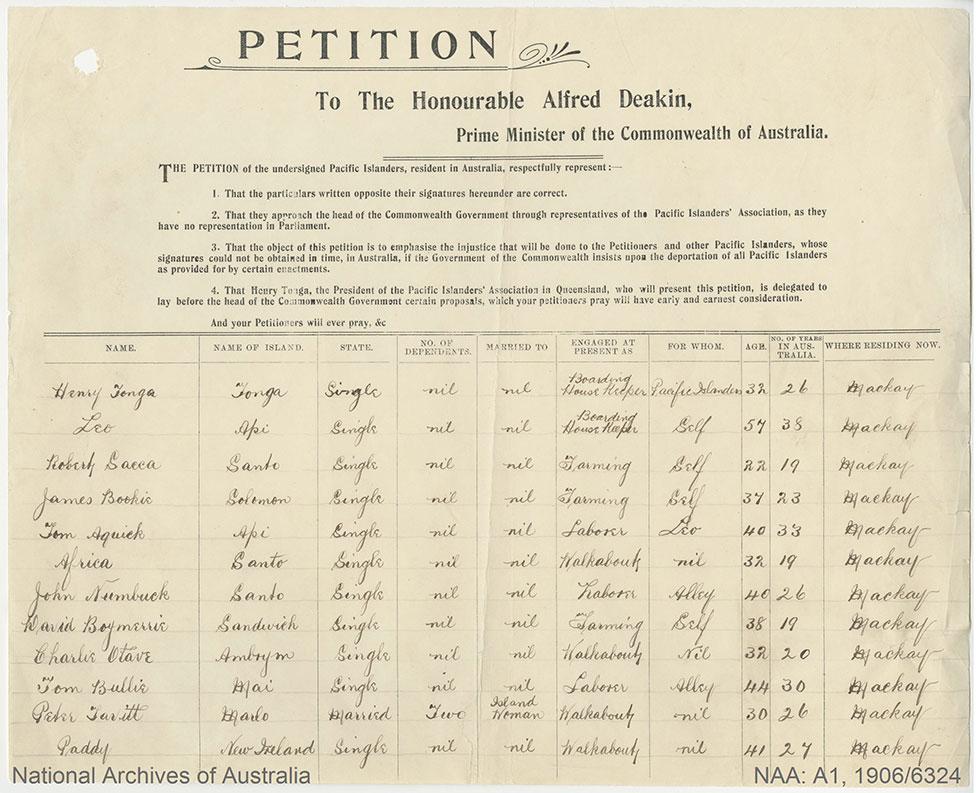 PETITION
To The Honourable Alfred Deakin,
Prime Minister of the Commonwealth of Australia.
THE PETITION of the undersigned Pacific Islanders, resident in Australia, respectfully represent :—
1. That the particulars written opposite their signatures hereunder are correct.
2. That they approach the head of the Commonwealth Government through representatives of the Pacific Islanders' Association, as they
have no representation in Parliament.
3. That the object of this petition is to emphasise the injustice that will be done to the Petitioners and other Pacific Islanders, whose
signatures could not be obtained in time, in Australia, if the Government of the Commonwealth insists upon the deportation of all Pacific Islanders
as provided for by certain enactments.
4. That Henry Tonga, the President of the Pacific Islanders' Association in Queensland, who will present this petition, is delegated to
lay before the head of the Commonwealth Government certain proposals, which your petitioners pray will have early and earnest consideration.
And your Petitioners will ever pray, &c
NAME. NAME OF ISLAND. STATE. NO. OF DEPENDENTS. MARRIED TO ENGAGED AT PRESENT AS FOR WHOM. AGE. NO. OF YEARS IN AUSTRALIA. WHERE RESIDING NOW.
Henry Tonga Tonga Single nil nil Boarding House Keeper Pacific Islanders 32 26 Mackay
Leo Api Single nil nil Boarding House Keeper Self 57 38 Mackay
Robert Sacca Santo Single nil nil Farming Self 22 19 Mackay
James Bookie Solomon Single nil nil Farming Self 37 23 Mackay
Tom Aquick Api Single nil nil Laborer Leo 40 33 Mackay
Africa Santo Single nil nil Walkabout nil 32 19 Mackay
John Numbuck Santo Single nil nil Laborer Alley 40 26 Mackay
David Boymerrie Sandwich Single nil nil Farming Self 38 19 Mackay
Charlie Otave Ambrym Single nil nil Walkabout Nil 32 20 Mackay
Tom Bullie Mai Single nil nil Laborer Alley 44 30 Mackay
Peter Marlo Married Two Island Woman Walkabout nil 30 26 Mackay
Paddy New Ireland Single nil nil Walkabout nil 41 27 Mackay
National Archives of Australia NAA: A1, 1906/6324